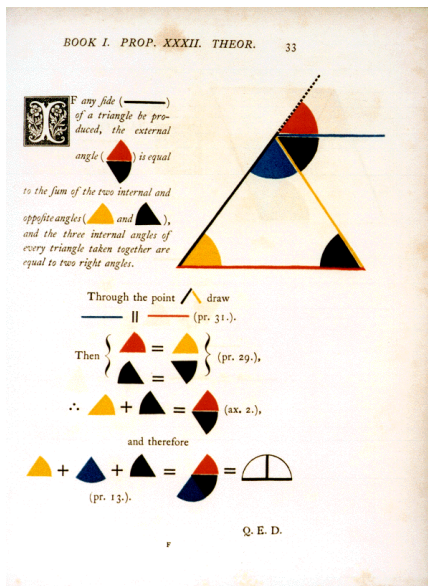 BOOK I. PROP. XXXII. THEOR. 33
IF any ſide ( )
of a triangle be pro-
duced, the external
angle ( ) is equal
to the ſum of the two internal and
oppoſite angles ( and ),
and the three internal angles of
every triangle taken together are
equal to two right angles.
Through the point draw
|| (pr. 31.).
Then { = = } (pr. 29.),
∴ + = (ax. 2.),
and therefore
+ + = =
(pr. 13.).
Q. E. D.
F